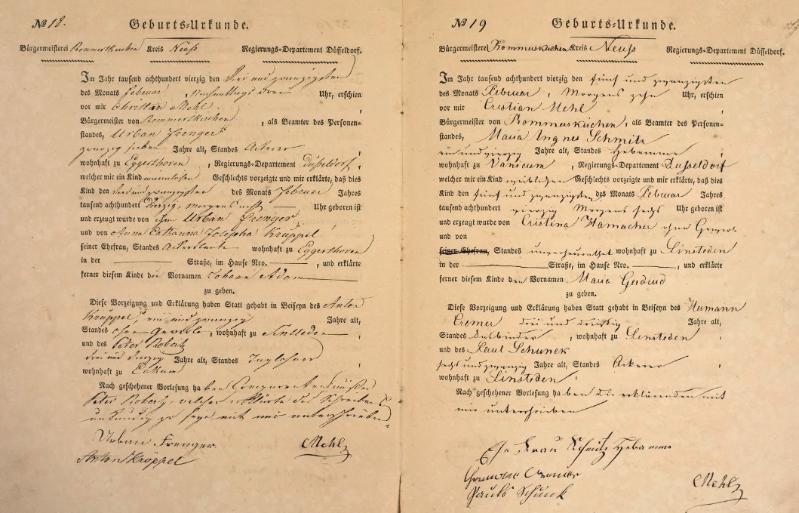 № 18. Geburts-Urkunde.
Bürgermeisterei Rommerskirchen Kreis Neuss Regierungs-Departement Düsseldorf.
In Jahr tausend achthundert vierzig den drei und zwanzigsten
des Monats Februar, Nachmittags drei Uhr, erschien
vor mir Christian Mehl
Bürgermeister von Rommerskirchen, als Beamter des Personen-
standes, Urban Frenger
zwanzig sieben Jahre alt, Standes Ackerer
wohnhaft zu Eggershoven, Regierungs-Departement Düsseldorf,
welcher mir ein Kind männlichen Geschlechts vorzeigte und mir erklärte, daß dies
Kind den drei und zwanzigsten des Monats Februar Jahres
tausend achthundert vierzig, morgens Uhr geboren ist
und erzeugt wurde von ihm Urban Frenger
und von Anna Catharina Josepha Kröppel
seiner Ehefrau, Standes wohnhaft zu Eggershoven
in der Straße, im Hause Nro. , und erklärte
ferner diesem Kinde die Vornamen Johann Adam
zu geben.
Diese Vorzeigung und Erklärung haben Statt gehabt in Beiseyn des Anton
Kröppel, ein und zwanzig Jahre alt,
Standes ohne Gewerb, wohnhaft zu
und des Peter Robertz
drei und zwanzig Jahre alt, Standes Taglöhner
wohnhaft zu
Nach geschehener Vorlesung haben
Peter Robertz, welcher erklärte des Schreibens
unkundig zu seyn mit mir unterschrieben
Urban Frenger
Anton Kröppel Mehl
№ 19 Geburts-Urkunde.
Bürgermeisterei Rommerskirchen Kreis Neuss Regierungs-Departement Düsseldorf.
Im Jahr tausend achthundert vierzig den fünf und zwanzigsten
des Monats Februar, Morgens zehn Uhr, erschien
vor mir Cristian Mehl
Bürgermeister von Rommerskirchen, als Beamter des Personen-
standes, Maria Agnes Schmitz
ein und vierzig Jahre alt, Standes Hebamme
wohnhaft zu, Regierungs-Departement Dusseldorf
welcher mir ein Kind weiblichen Geschlechts vorzeigte und mir erklärte, daß dies
Kind den fünf und zwanzigsten des Monats Februar Jahres
tausend achthundert vierzig Morgens sechs Uhr geboren ist
und erzeugt wurde von Cristina Hamacher ohne Gewerb
und von
seiner Ehefrau, Standes unverheirathet wohnhaft zu Sinsteden
in der Straße, im Hause Nro. , und erklärte
ferner diesem Kinde den Vornamen Maria Gertrud
zu geben.
Diese Vorzeigung und Erklärung haben Statt gehabt in Beiseyn des Hermann
Cremer drei und dreißig Jahre alt,
Standes, wohnhaft zu Sinsteden
und des Paul Schunck
sechs und zwanzig Jahre alt, Standes Ackerer
wohnhaft zu Sinsteden
Nach geschehener Vorlesung haben die erklärenden mit
mir unterschrieben
Ehe Frau Schmitz Hebamme
Cremer
Pauls Schunck Mehl